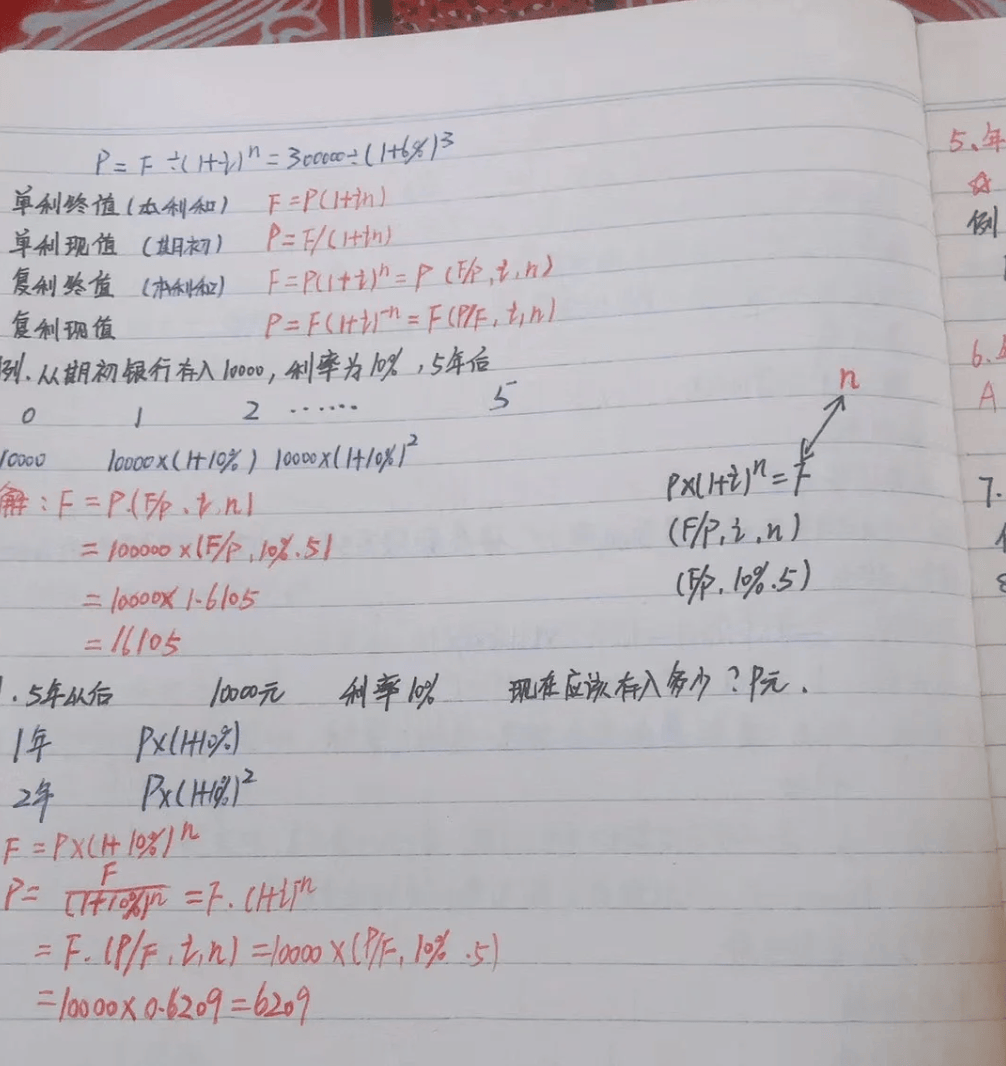 P = F ÷(1+i)ⁿ = 300000÷(1+6%)³
单利终值(本利和) F=P(1+in)
单利现值 (期初) P=F/(1+in)
复利终值 (本利和) F=P(1+i)ⁿ=P (F/P,i,n)
复利现值 P=F(1+i)⁻ⁿ=F(P/F,i,n)
例.从期初银行存入10000,利率为10%,5年后
0 1 2 …… 5
10000 10000×(1+10%) 10000×(1+10%)²
解:F=P.(F/P、i,n)
=100000×(F/P,10%.5)
=10000×1.6105
=16105
n
P×(1+i)ⁿ=F
(F/P,i,n)
(F/P,10%.5)
.5年以后 10000元 利率10% 现在应该存入多少?P元.
1年 P×(1+10%)
2年 P×(1+10%)²
F=P×(1+10%)ⁿ
P=F/(1+10%)ⁿ=F.(1+i)⁻ⁿ
=F.(P/F,i,n)=10000×(P/F,10%.5)
=10000×0.6209=6209
5、年
☆
例
6.
A
7.